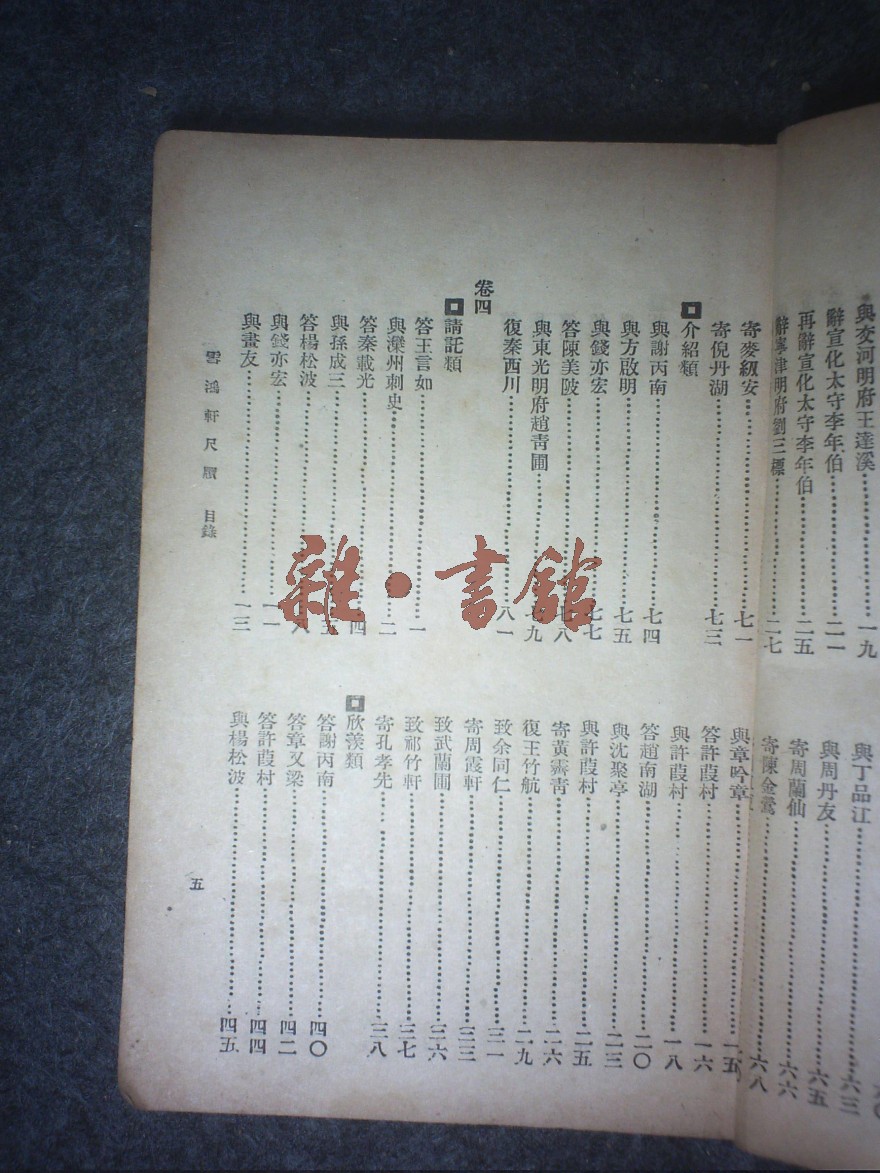 與交河明府王達溪……一九
辭宣化太守李年伯……二一
再辭宣化太守李年伯……二五
辭寧津明府劉三標……二七
寄麥級安……七一
寄倪丹湖……七三
介紹類
與謝丙南……七四
與方啟明……七五
與錢亦宏……七七
答陳美陂……七八
與東光明府趙青圃……七九
復秦西川……八一
卷四
請託類
答王言如……一
與灤州刺史……二
答秦載光……四
與孫成三
答楊松波……八
與錢亦宏……一一
與畫友……一三
與丁品江……六三
與周丹友……六五
寄周蘭仙……六六
寄陳金鴦……六八
與章吟章……一五
答許葭村……一六
與許葭村……一八
答趙南湖……二〇
與沈聚亭……二三
與許葭村……二五
寄黃霽青……二六
復王竹航……二九
致余同仁……三一
寄周霞軒……三三
致武蘭圃……三六
致祁竹軒……三七
寄孔孝先……三八
欣羨類
答謝丙南……四〇
答章又梁……四二
答許葭村……四四
與楊松波……四五
雪鴻軒尺牘 目錄
五
雜·書館